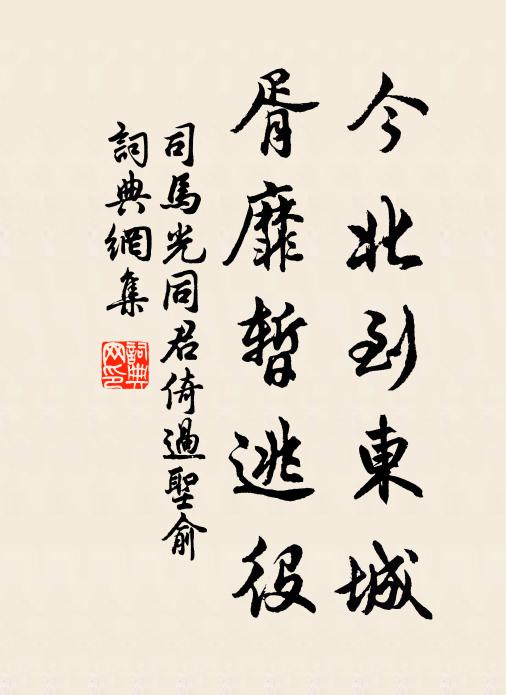 今北到東城
胥靡暫逃役
司馬光同君倚過聖俞
詞典網集
詞典
网印